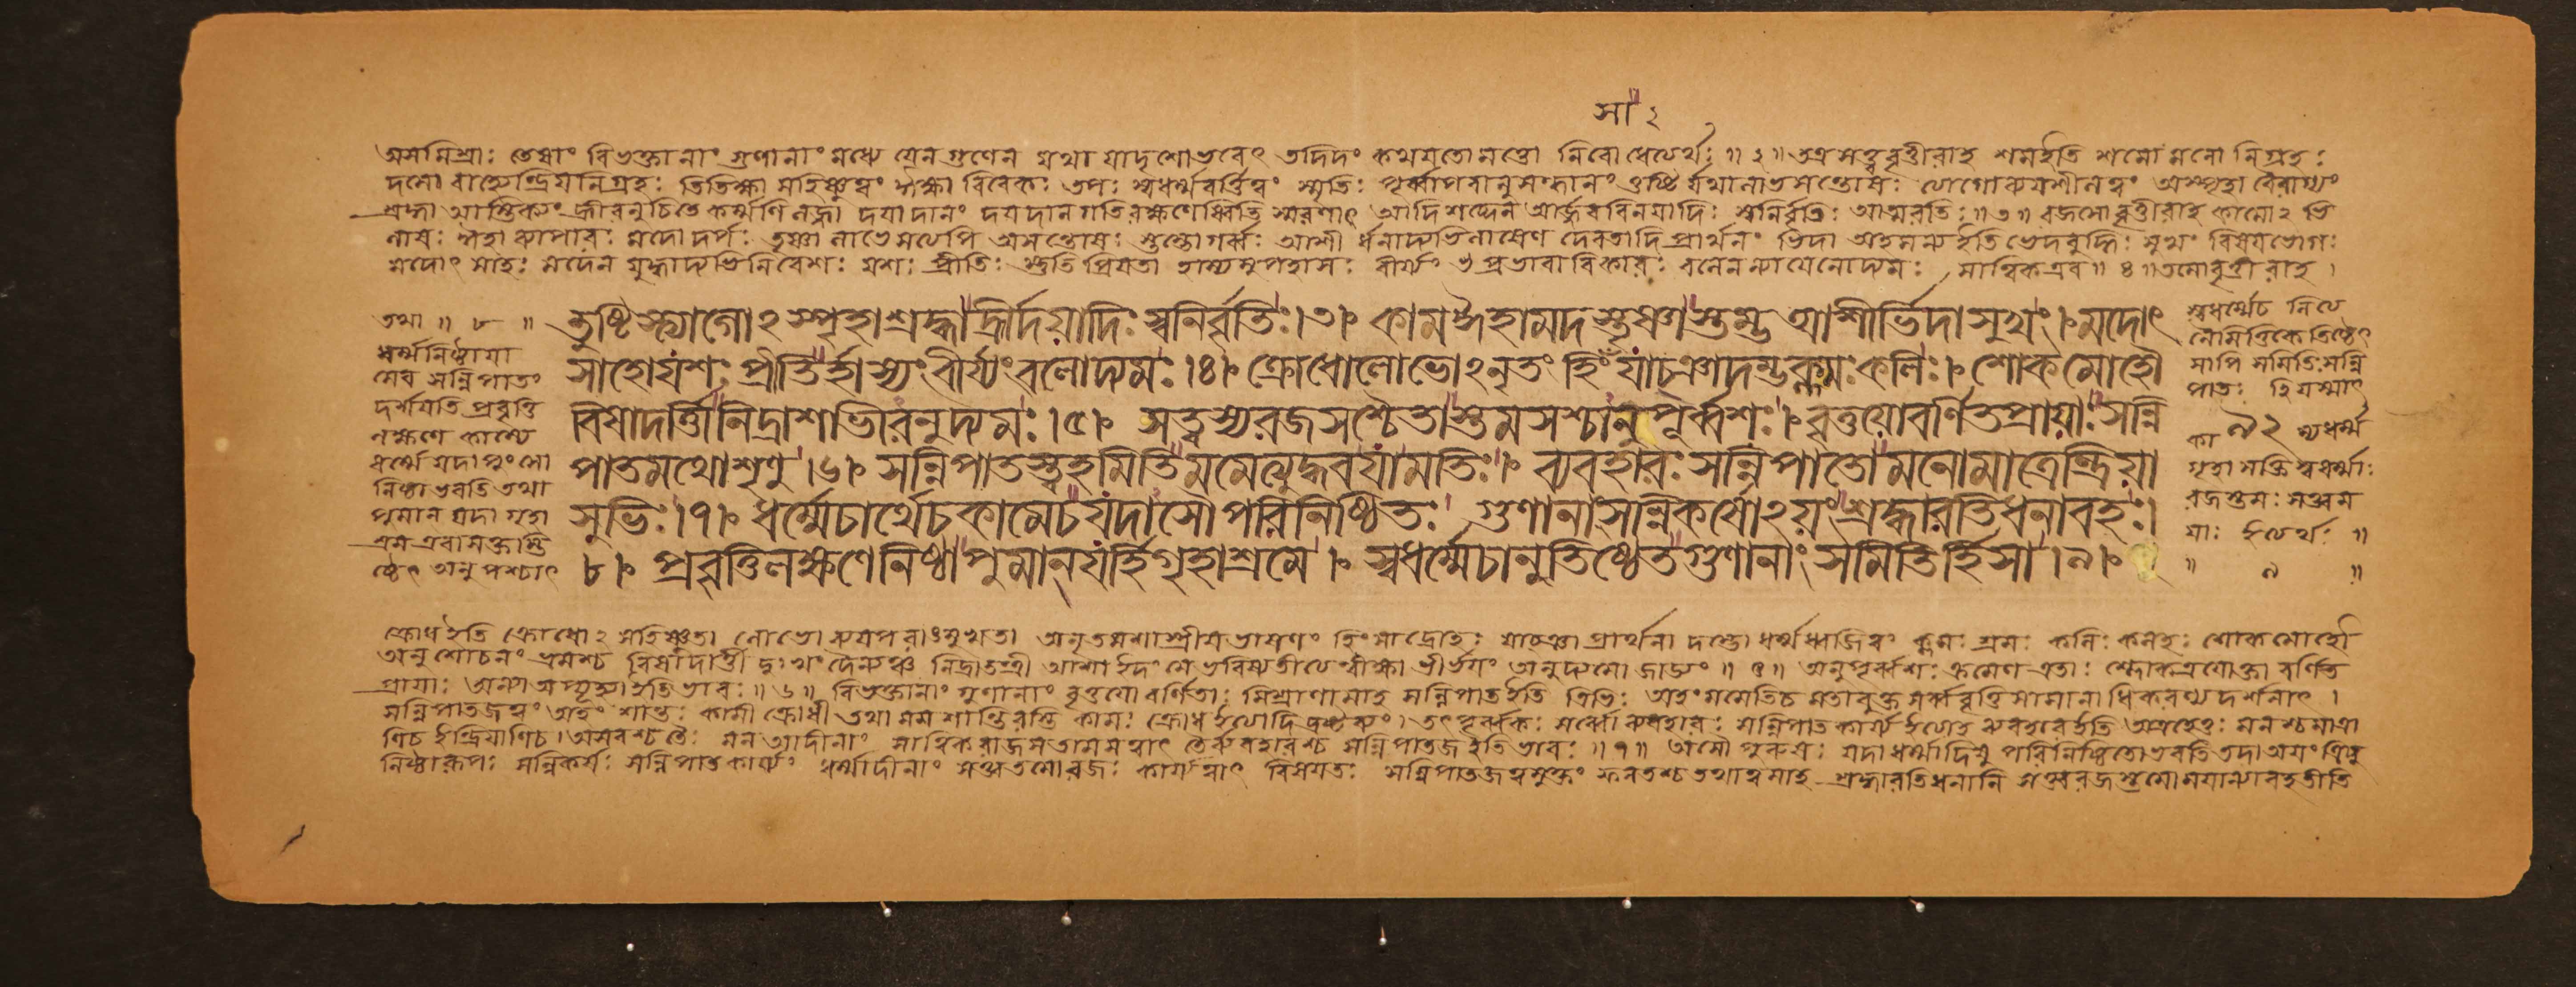 সা ২
অসন্মিশ্রাঃ তেষাং বিভক্তানাং গুণানাং মধ্যে যেন গুণেন যথা যাদৃশোভবেৎ তদিদং কথয়তো মত্তো নিবোধেত্যর্থঃ ॥ ২ ॥ তত্র সত্ত্ববৃত্তীরাহ শমইতি শমো মনো নিগ্রহঃ
দমো বাহ্যেন্দ্রিয়নিগ্রহঃ তিতিক্ষা সহিষ্ণুত্বং ঈক্ষা বিবেকঃ তপঃ স্বধর্ম্মবর্ত্তিত্বং স্মৃতিঃ পূর্ব্বাপরানুসন্ধানং তুষ্টি র্যথালাভসন্তোষঃ ত্যাগোব্যয়শীলত্বং অস্পৃহা বৈরাগ্যং
শ্রদ্ধা আস্তিক্যং হ্রীরনুচিতে কর্ম্মণি লজ্জা দয়া দানং দয় দান গতি রক্ষণেষ্বিতি স্মরণাৎ আদি শব্দেন আর্জ্জববিনয়াদিঃ স্বনির্বৃতিঃ আত্মরতিঃ ॥ ৩ ॥ রজসো বৃত্তীরাহ কামোঽ ভি
লাষঃ ঈহা ব্যাপারঃ মদো দর্পঃ তৃষ্ণা লাভে সত্যপি অসন্তোষঃ স্তম্ভোগর্ব্বঃ আশী র্ধনাদ্যভিলাষেণ দেবতাদি প্রার্থনং ভিদা অহমন্যইতি ভেদবুদ্ধিঃ সুখং বিষয়ভোগঃ
মদোৎ সাহঃ মদেন যুদ্ধাদ্যভিনিবেশঃ যশঃ প্রীতিঃ স্তুতি প্রিয়তা হাস্যমুপহাসঃ বীর্য্যং প্রভাবাবিষ্কারঃ বলেন ন্যায়েনোদ্যমঃ সাত্ত্বিকএব ॥ ৪ ॥ তমোবৃত্তীরাহ ।
তুষ্টিস্ত্যাগোঽস্পৃহাশ্রদ্ধাহ্রীর্দয়াদিঃ স্বনির্বৃতিঃ । ৩ । কামঈহামদস্তৃষ্ণাস্তম্ভ আশীর্ভিদাসুখং । মদোৎ
সাহোযশঃ প্রীতির্হাস্যং বীর্য্যং বলোদ্যমঃ । ৪ । ক্রোধোলোভোঽনৃতং হিংসা যাচ্ঞাদম্ভক্লমঃকলিঃ । শোকমোহৌ
বিষাদার্ত্তীনিদ্রাশাভীরনুদ্যমঃ । ৫ । সত্ত্বস্যরজসশ্চৈতাস্তমসশ্চানুপূর্ব্বশঃ । বৃত্তয়োবর্ণিতপ্রায়াঃ সন্নি
পাতমথোশৃণু । ৬ । সন্নিপাতস্ত্বহমিতিমমেত্যুদ্ধবয়ামতিঃ । ব্যবহারঃ সন্নিপাতোমনোমাত্রেন্দ্রিয়া
সুভিঃ । ৭ । ধর্ম্মেচার্থেচকামেচযদাসৌপরিনিষ্ঠিতঃ গুণানাংসন্নিকর্ষোঽয়ং শ্রদ্ধারতিধনাবহঃ ।
৮ । প্রবৃত্তিলক্ষণেনিষ্ঠাপুমান্যর্হিগৃহাশ্রমে । স্বধর্ম্মেচানুতিষ্ঠেতগুণানাং সমিতির্হিসা । ৯ ।
তথা ॥ ৮ ॥
ধর্ম্মনিষ্ঠায়া
মেব সন্নিপাতং
দর্শয়তি প্রবৃত্তি
লক্ষণে কাম্যে
ধর্ম্মে যদা পুংসো
নিষ্ঠা ভবতি তথা
পুমান যদা গৃহা
শ্রম এবাসক্তস্তি
ষ্ঠেৎ অনু পশ্চাৎ
স্বধর্ম্মেচ নিত্য
নৈমিত্তিকে তিষ্ঠেৎ
সাপি সমিতিঃসন্নি
পাতঃ হি যস্মাৎ
কা ৯২ ম্যধর্ম্ম
গৃহা সক্তি স্বধর্ম্মাঃ
রজস্তমঃ সত্ত্বম
য়াঃ ইত্যর্থঃ ॥
॥ ৯ ॥
ক্রোধইতি ক্রোধোঽ সহিষ্ণুতা লোভো ব্যয়পরাঙ্মুখতা অনৃতমশাস্ত্রীয়ভাষণং হিংসাদ্রোহঃ যাচ্ঞা প্রার্থনা দম্ভো ধর্ম্মধ্বজিত্বং ক্লমঃ শ্রমঃ কলিঃ কলহঃ শোকমোহৌ
অনুশোচনং ভ্রমশ্চ বিষাদার্ত্তী দুঃখং দৈন্যঞ্চ নিদ্রাতন্দ্রী আশা ইদং মে ভবিষ্যতীত্যপেক্ষা ভীর্ভয়ং অনুদ্যমো জাড্যং ॥ ৫ ॥ অনুপূর্ব্বশঃ ক্রমেণ এতাঃ বর্ণিত
প্রায়াঃ ইতি ভাবঃ ॥ ৬ ॥ বিভক্তানাং গুণানাং বৃত্তয়ো বর্ণিতাঃ মিশ্রাণামাহ সন্নিপাতইতি ত্রিভিঃ অহং মমেতিচ সামানাধিকরণ্য দর্শনাৎ ।
সন্নিপাতজত্বং অহং শান্তঃ কামী ক্রোধী তথা মম শান্তিরস্তি কামঃ ক্রোধইত্যাদি । তৎপূর্ব্বকঃ সর্ব্বো ব্যবহারঃ সন্নিপাত কার্য্যইত্যাহ ব্যবহারইতি অত্রহেতুঃ মনশ্চ মাত্রা
ণিচ ইন্দ্রিয়াণিচ । অসবশ্চ তৈঃ মন আদীনাং সাত্ত্বিক রাজস তামসত্বাৎ তৈর্ব্যবহারশ্চ সন্নিপাতজ ইতি ভাবঃ ॥ ৭ ॥ অসৌ পুরুষঃ যদা ধর্ম্মাদিষু পরিনিষ্ঠিতোভবতি তদা অয়ং ত্রিষু
নিষ্ঠারূপঃ সন্নিকর্ষঃ সন্নিপাত কার্য্যং ধর্ম্মাদীনাং সত্ত্বতমোরজঃ কার্য্যত্বাৎ বিষয়তঃ সন্নিপাতজত্বমুক্তং ফলতশ্চ তথাত্বমাহ শ্রদ্ধারতিধনানি সত্ত্বরজস্তমোময়ান্যাবহতীতি